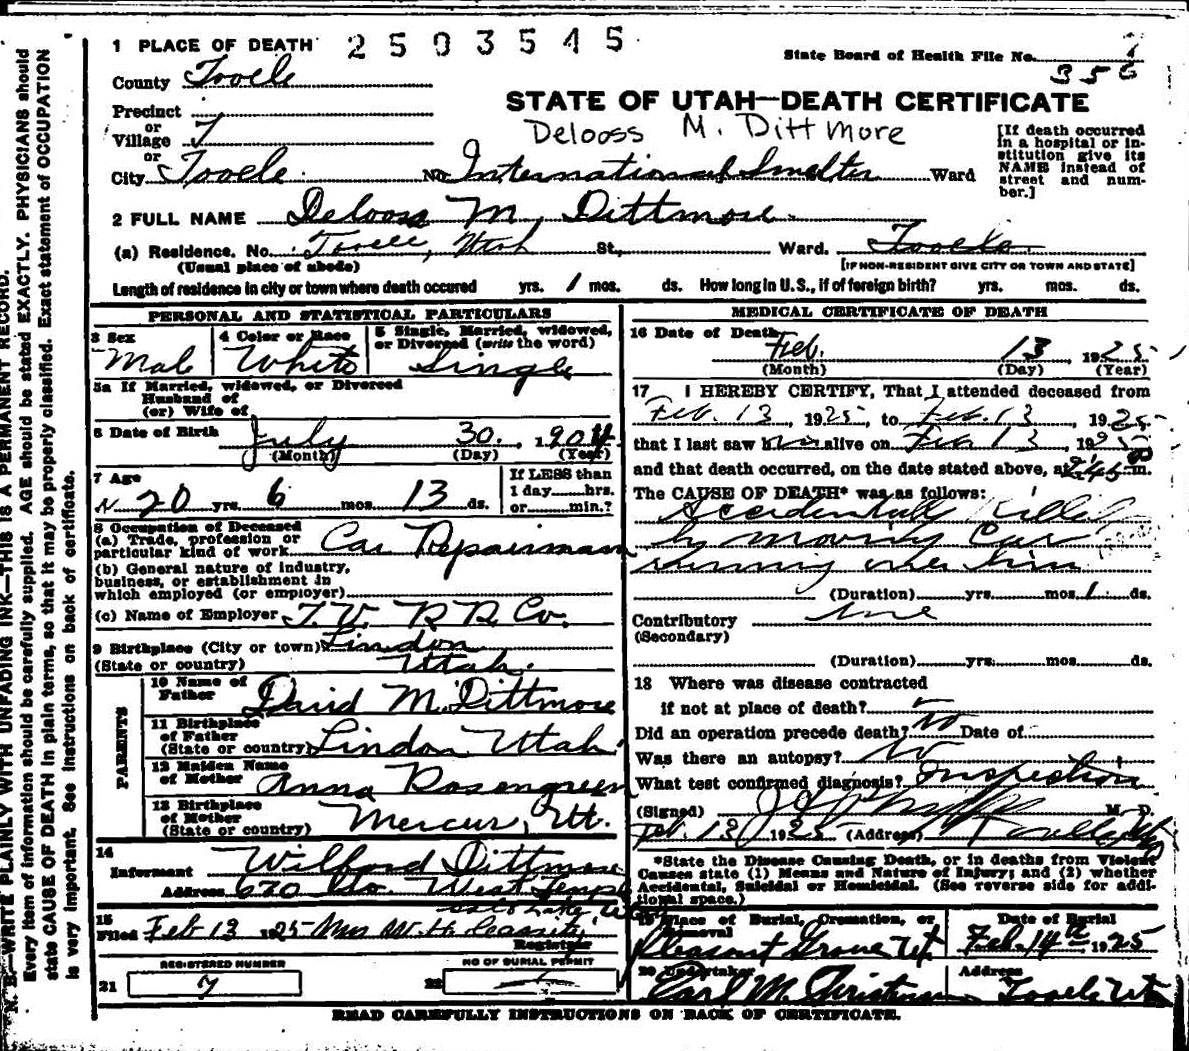 1 PLACE OF DEATH 2503545
State Board of Health File No. 7
356
County Tooele
STATE OF UTAH—DEATH CERTIFICATE
Delooss M. Dittmore
Precinct
or
Village 7
or
City Tooele. No. International Smelter Ward
[If death occurred
in a hospital or in-
stitution give its
NAME instead of
street and num-
ber.]
2 FULL NAME Delooss M. Dittmore.
(a) Residence. No. Tooele, Utah St., Ward. Tooele
(Usual place of abode) [IF NON-RESIDENT GIVE CITY OR TOWN AND STATE]
Length of residence in city or town where death occured yrs. 1 mos. ds. How long in U.S., if of foreign birth? yrs. mos. ds.
PERSONAL AND STATISTICAL PARTICULARS
3 Sex
Male
4 Color or Race
White
5 Single, Married, widowed,
or Divorced (write the word)
Single
5a If Married, widowed, or Divorced
Husband of
(or) Wife of
6 Date of Birth July 30, 1904
(Month) (Day) (Year)
7 Age
20 yrs. 6 mos. 13 ds.
If LESS than
1 day......hrs.
or......min.?
8 Occupation of Deceased
(a) Trade, profession or
particular kind of work Car Repairman
(b) General nature of industry,
business, or establishment in
which employed (or employer)
(c) Name of Employer T. V. R R Co.
9 Birthplace (City or town) Lindon
(State or country) Utah.
PARENTS
10 Name of
Father David M. Dittmore
11 Birthplace
of Father
(State or country) Lindon Utah
12 Maiden Name
of Mother Anna Rosengreen
13 Birthplace
of Mother
(State or country) Mercur, Ut.
14
Informant Wilford Dittmore
Address 670 So. West Temple
Salt Lake, Ut
15
Filed Feb 13 1925 Mrs W. H. Cassity
Registrar
REGISTERED NUMBER
21 7
NO OF BURIAL PERMIT
22
MEDICAL CERTIFICATE OF DEATH
16 Date of Death
Feb. 13, 1925
(Month) (Day) (Year)
17 I HEREBY CERTIFY, That I attended deceased from
Feb. 13, 1925, to Feb. 13, 1925
that I last saw him alive on Feb 13 1925
and that death occurred, on the date stated above, at 2:45 P m.
The CAUSE OF DEATH* was as follows:
Accidentally Killed
by moving Car
running over him
(Duration) yrs. mos. 1 ds.
Contributory none
(Secondary)
(Duration) yrs. mos. ds.
18 Where was disease contracted
if not at place of death?
Did an operation precede death? No Date of
Was there an autopsy? No
What test confirmed diagnosis? Inspection
(Signed) M. D.
Feb. 13 1925 (Address) Tooele Ut
*State the Disease Causing Death, or in deaths from Violent
Causes state (1) Means and Nature of Injury; and (2) whether
Accidental, Suicidal or Homicidal. (See reverse side for addi-
tional space.)
19 Place of Burial, Cremation, or
Removal
Pleasant Grove Ut.
Date of Burial
Feb. 14th 1925
20 Undertaker
Earl M. Christensen
Address
Tooele Ut
READ CAREFULLY INSTRUCTIONS ON BACK OF CERTIFICATE.
N. B.—WRITE PLAINLY WITH UNFADING INK—THIS IS A PERMANENT RECORD.
Every item of information should be carefully supplied. AGE should be stated EXACTLY. PHYSICIANS should
state CAUSE OF DEATH in plain terms, so that it may be properly classified. Exact statement of OCCUPATION
is very important. See instructions on back of certificate.